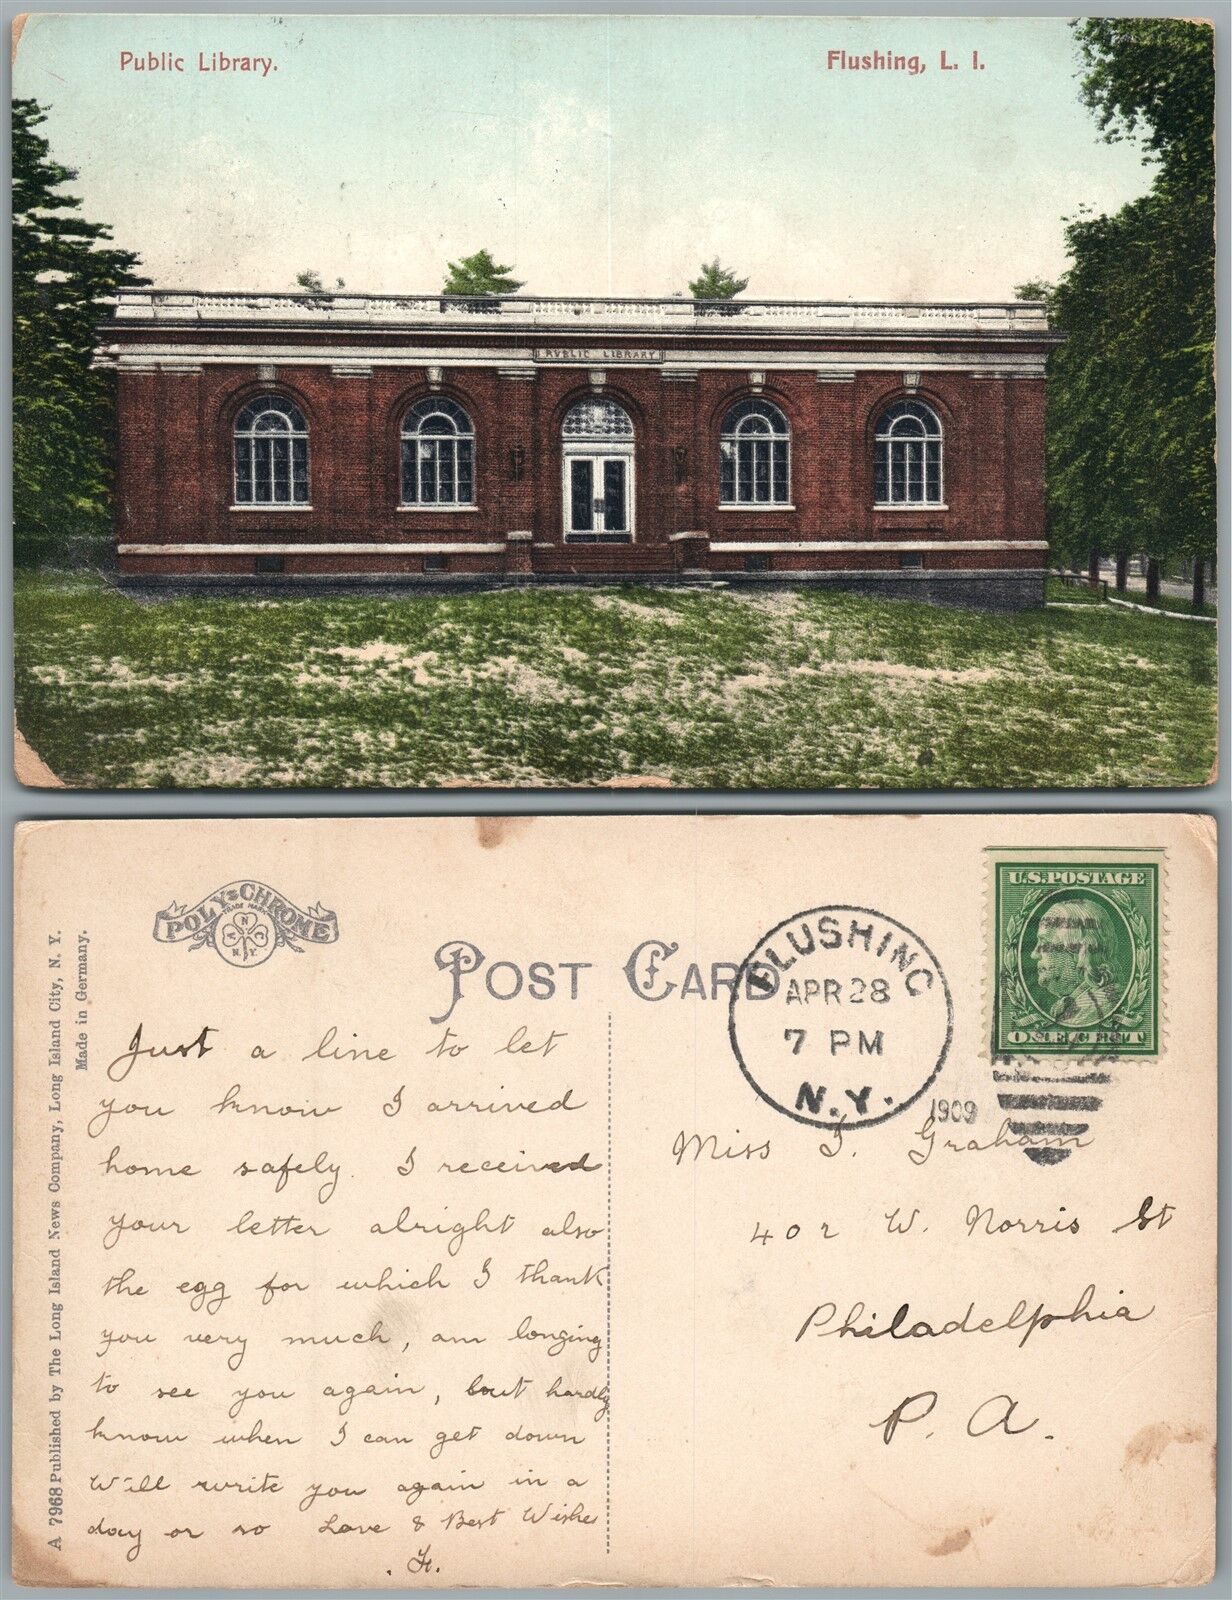 Public Library.
Flushing, L. I.
PVBLIC LIBRARY
POLY-CHROME
TRADE MARK
POST CARD
FLUSHING
APR 28
7 PM
N.Y.
1909
U.S.POSTAGE
ONE CENT
A 7968 Published by The Long Island News Company, Long Island City, N. Y.
Made in Germany.
Just a line to let
you know I arrived
home safely. I received
your letter alright also
the egg for which I thank
you very much, am longing
to see you again, but hardly
know when I can get down
Will write you again in a
day or so Love & Best Wishes
Miss I. Graham
402 W. Norris St
Philadelphia
P. A.